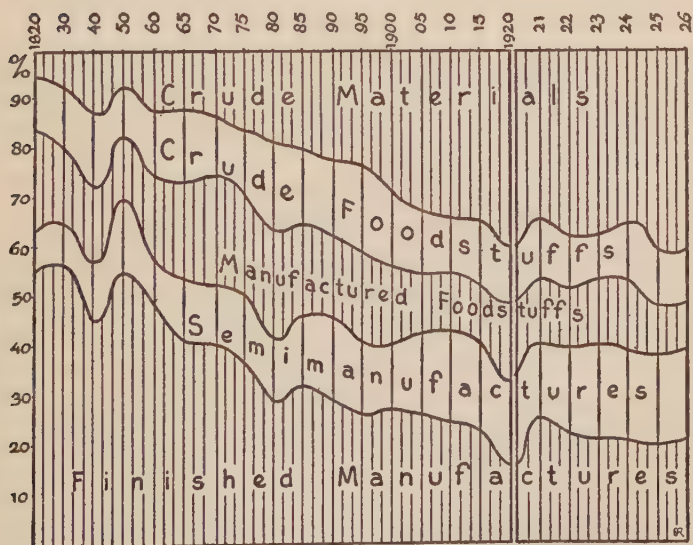 1820 30 40 50 60 65 70 75 80 85 90 95 1900 05 10 15 1920 21 22 23 24 25 26
%
90
80
70
60
50
40
30
20
10
Crude Materials
Crude Foodstuffs
Manufactured Foodstuffs
Semimanufactures
Finished Manufactures